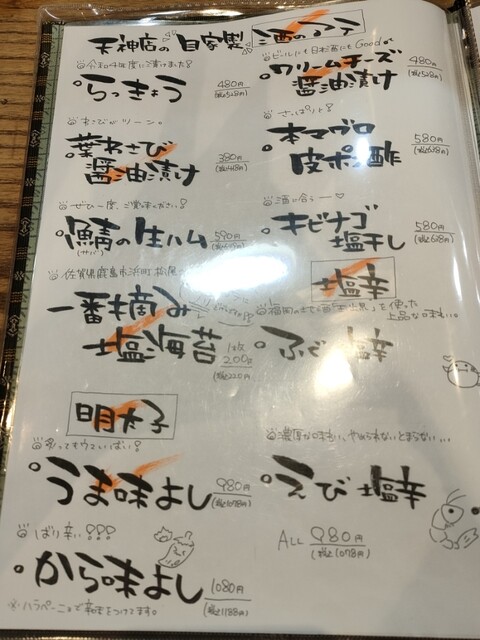 天神店の自家製 酒のアテ
令和4年度に漬けました!
らっきょう
480円
(税込528円)
わさびがツーン。
葉わさび
醤油漬け
380円
(税込418円)
ぜひ一度、ご賞味ください!
鯖の生ハム
(サバ)
590円
佐賀県鹿島市浜町
一番摘み
塩海苔
1枚
200円
(税込220円)
明太子
炙ってもウマいばい!
うま味よし
980円
(税込1078円)
ばり辛い!!!
から味よし
1080円
(税込1188円)
※ハラペーニョで辛味をつけてます。
ビールにも日本酒にもGood。
クリームチーズ
醤油漬け
480円
(税込528円)
さっぱりと!
本マグロ
皮ポン酢
580円
(税込638円)
酒に合う〜♡
キビナゴ
塩干し
580円
(税込638円)
塩辛
を使った
上品な味わい。
ふぐ塩辛
濃厚な味わい、やめられないとまらない...
えび塩辛
ALL 980円
(税込1078円)